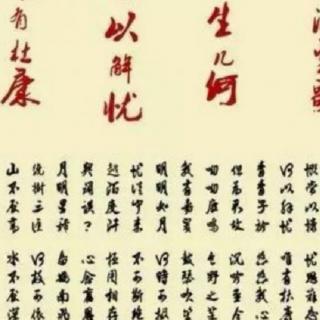 生几何
以解忧
有杜康
慨當以慷
何以解忧
青青子衿
但為君故
呦呦鹿鳴
我有嘉賓
明明如月
忧從中來
越陌度阡
契闊談
月明星稀
繞樹三匝
山不厭高
忧思難忘
唯有杜康
悠悠我心
沉吟至今
食野之苹
鼓瑟吹笙
何時可掇
不可斷絕
枉用相存
心念舊恩
烏鵲南飛
何枝可依
水不厭深